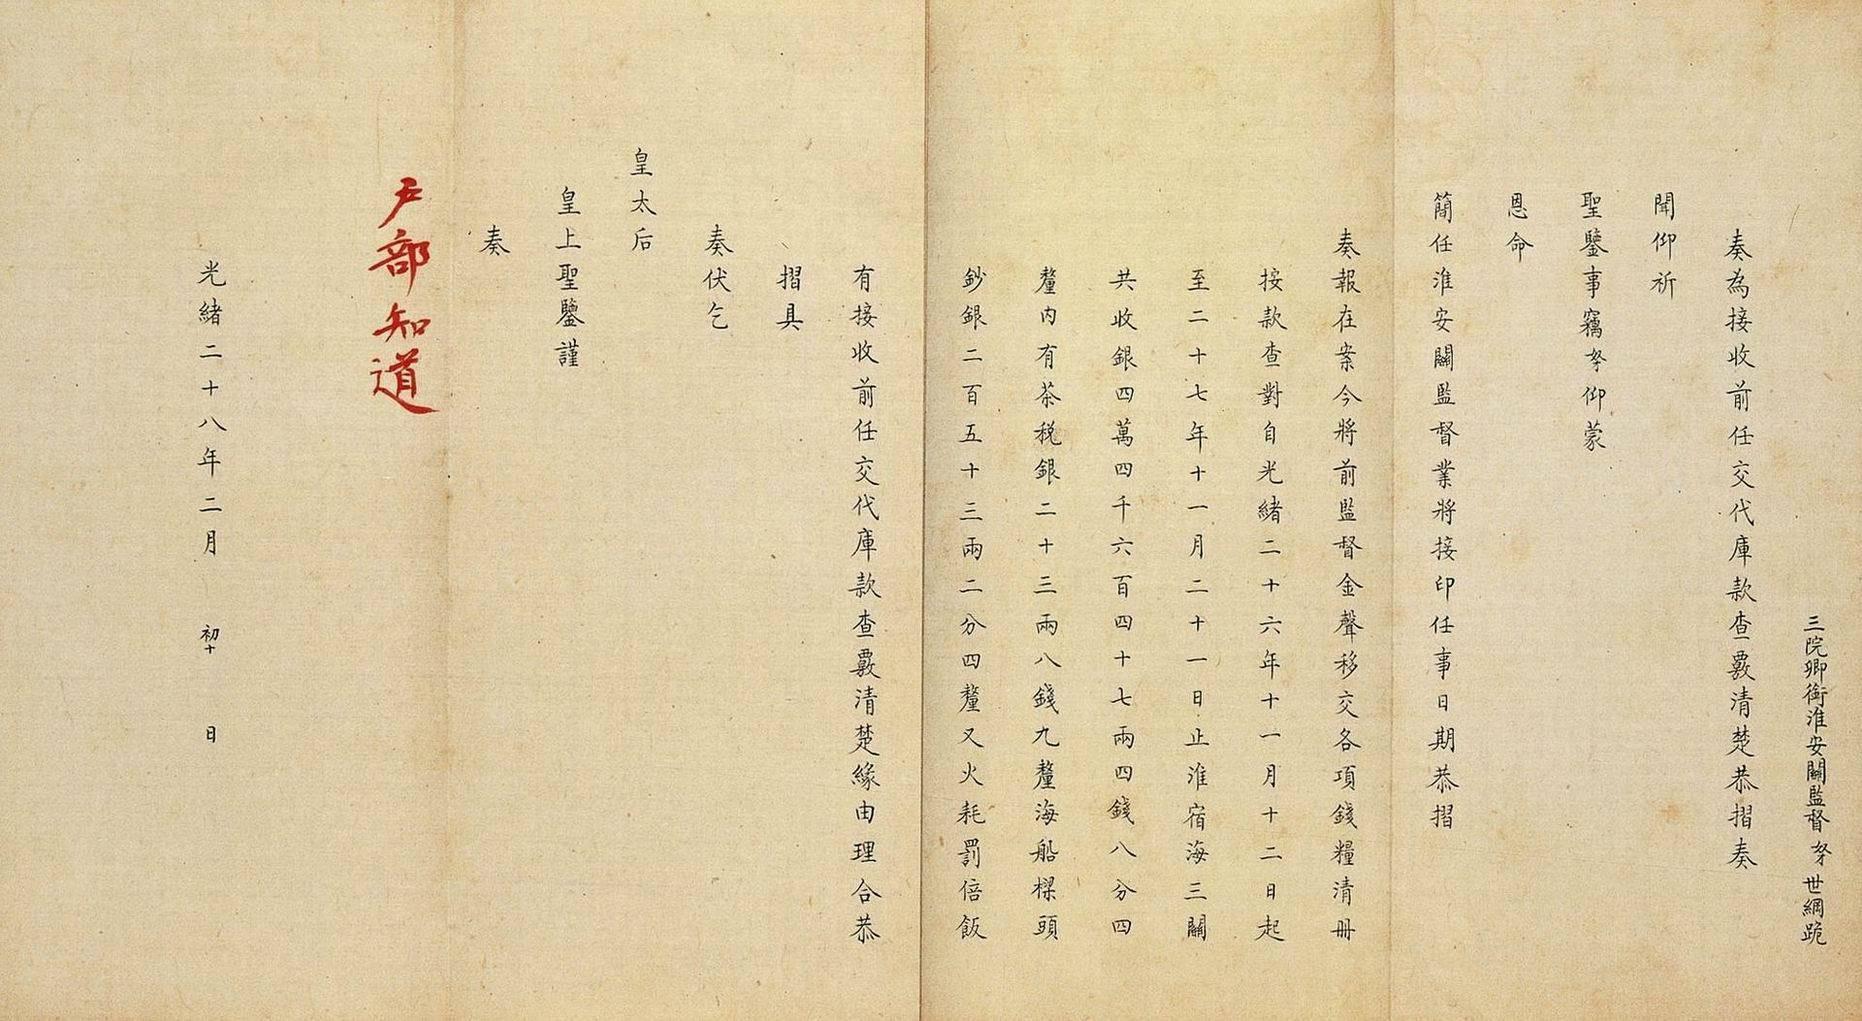 三院卿銜淮安關監督奴世綱跪
奏為接收前任交代庫款查覈清楚恭摺奏
聞仰祈
聖鑒事竊奴仰蒙
恩命
簡任淮安關監督業將接印任事日期恭摺
奏報在案今將前監督金聲移交各項錢糧清册
按款查對自光緒二十六年十一月十二日起
至二十七年十一月二十一日止淮宿海三關
共收銀四萬四千六百四十七兩四錢八分四
釐內有茶稅銀二十三兩八錢九釐海船樑頭
鈔銀二百五十三兩二分四釐又火耗罰倍飯
有接收前任交代庫款查覈清楚緣由理合恭
摺具
奏伏乞
皇太后
皇上聖鑒謹
奏
戶部知道
光緒二十八年二月 初十 日